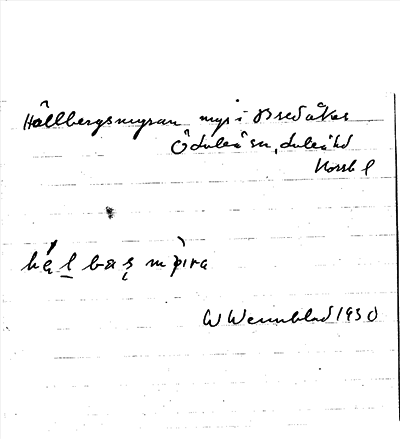 Hällbergsmyran myr i Bredåker
Ö. Luleå sn, Luleå hd
Norrb l
W Wennblad 1930